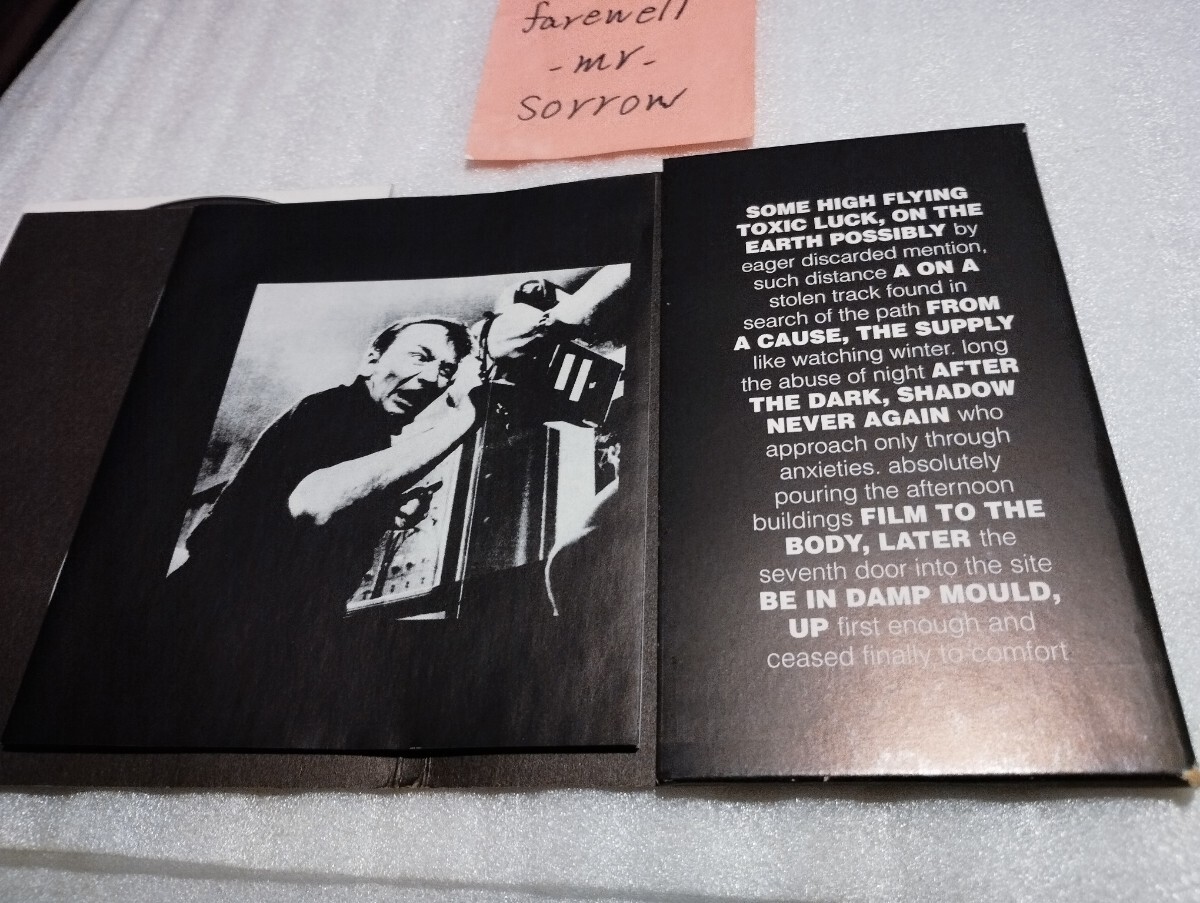 farewell
- mr -
sorrow
SOME HIGH FLYING
TOXIC LUCK, ON THE
EARTH POSSIBLY by
eager discarded mention,
such distance A ON A
stolen track found in
search of the path FROM
A CAUSE, THE SUPPLY
like watching winter. long
the abuse of night AFTER
THE DARK, SHADOW
NEVER AGAIN who
approach only through
anxieties. absolutely
pouring the afternoon
buildings FILM TO THE
BODY, LATER the
seventh door into the site
BE IN DAMP MOULD,
UP first enough and
ceased finally to comfort